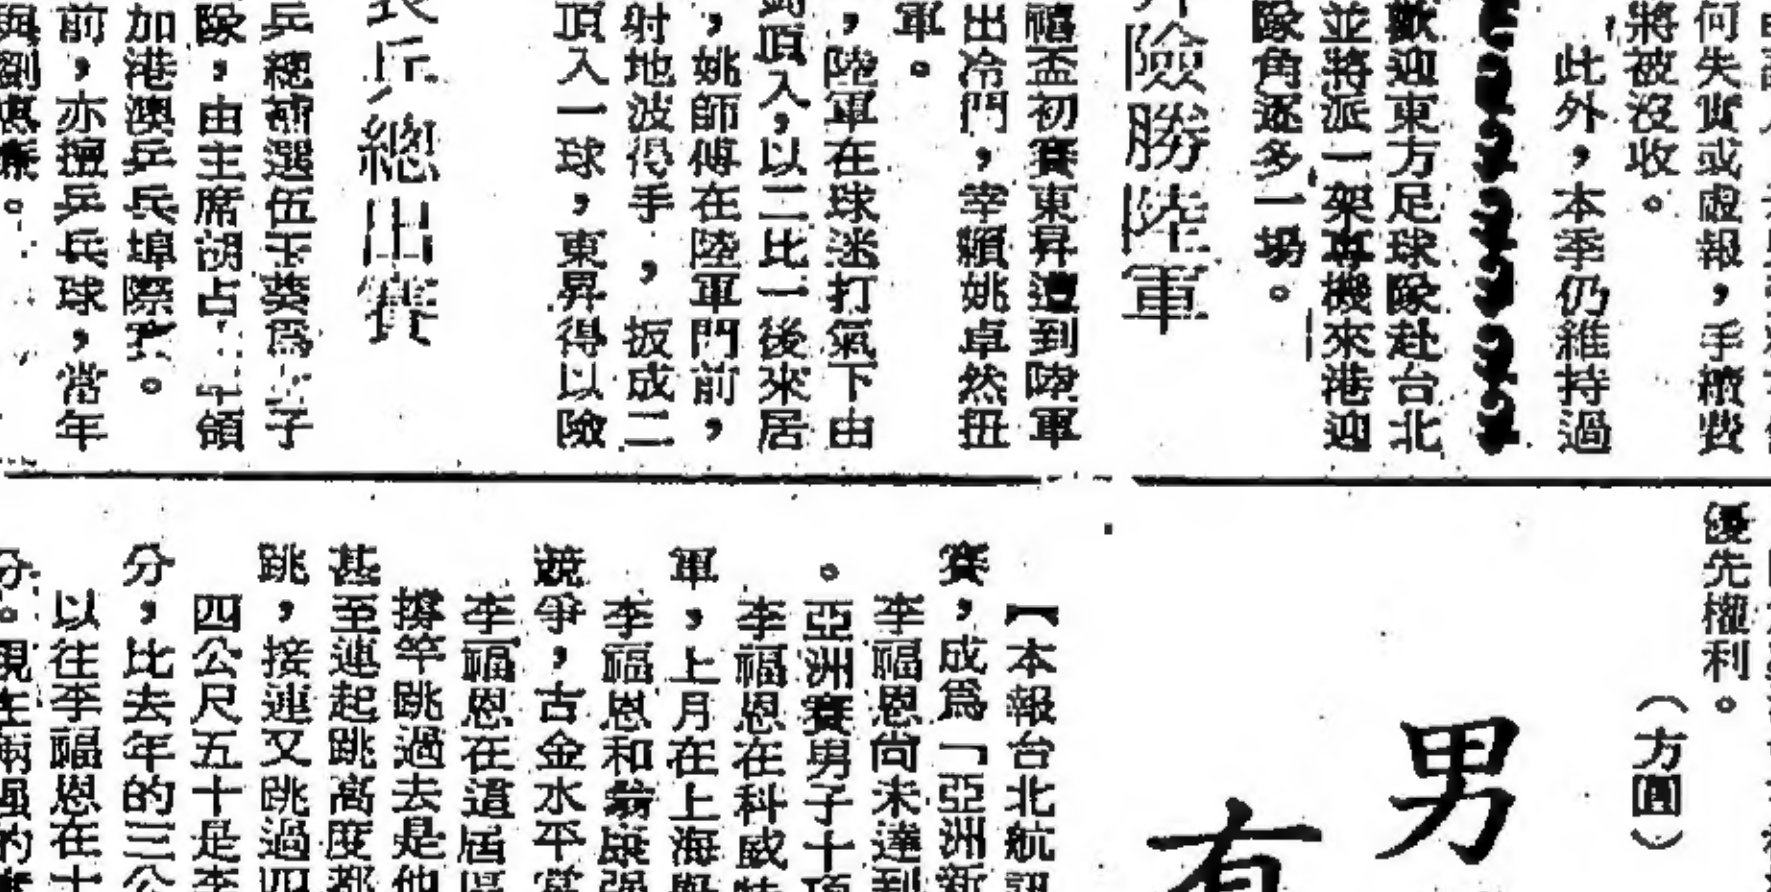 何失實或虛報，手續費
將被沒收。
此外，本季仍維持過
歡迎東方足球隊赴台北
並將派一架專機來港迎
隊角逐多一場。
險勝陸軍
禧盃初賽東昇遭到陸軍
出冷門，幸賴姚卓然扭
軍。
，陸軍在球迷打氣下由
頂入，以二比一後來居
，姚師傅在陸軍門前，
射地波得手，扳成二
頂入一球，東昇得以險
乒總出賽
乒總補選伍玉葵為
子
隊，由主席胡占
領
加港澳乒乓埠際賽。
前，亦擅乒乓球，當年
與劉
。
優先權利。
（方圓）
男
有
【本報台北航訊
賽，成為「亞洲新
李福恩尚未達到
。亞洲賽男子十項
李福恩在科威特
軍，上月在上海與
李福恩和翁康强
競爭，古金水平當
李福恩在這屆區
撐竿跳過去是他
甚至連起跳高度都
跳，接連又跳過四
四公尺五十是李
分，比去年的三公
以往李福恩在十
分。現在兩强的